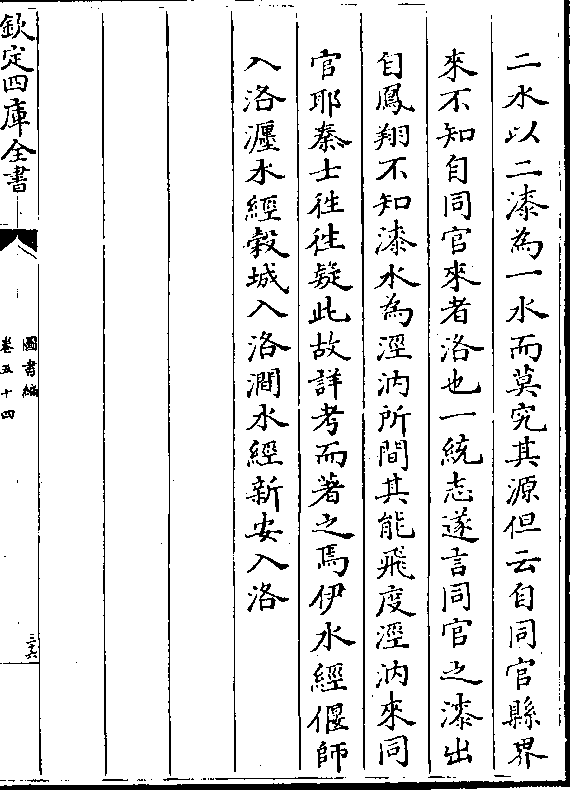 二水以二漆為一水而莫究其源但云自同官縣界
來不知自同官來者洛也一統志遂言同官之漆出
自鳳翔不知漆水為涇汭所間其能飛度涇汭來同
官耶秦士徃徃疑此故詳考而著之焉伊水經偃師
入洛瀍水經穀城入洛澗水經新安入洛
欽定四庫全書
圖書編
卷五十四
三六